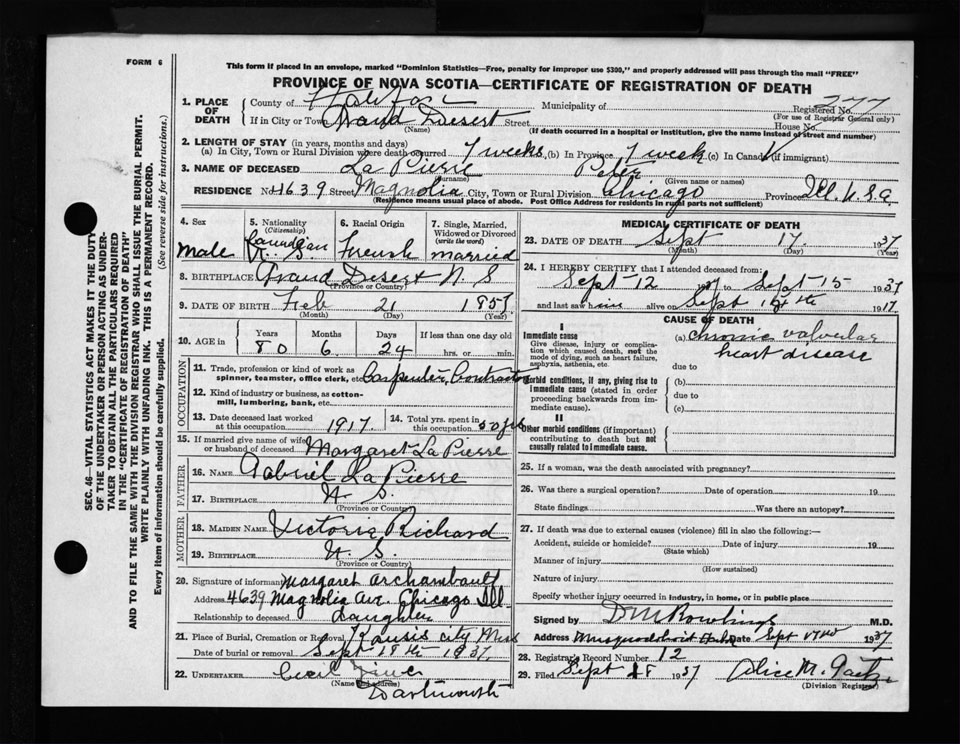 FORM 6
This form if placed in an envelope, marked "Dominion Statistics—Free, penalty for improper use $300," and properly addressed will pass through the mail "FREE"
PROVINCE OF NOVA SCOTIA—CERTIFICATE OF REGISTRATION OF DEATH
1. PLACE OF DEATH County of Halifax Municipality of Registered No. 277
(For use of Registrar General only)
If in City or Town Grand Desert Street House No.
(Name) (If death occurred in a hospital or institution, give the name instead of street and number)
2. LENGTH OF STAY (in years, months and days)
(a) In City, Town or Rural Division where death occurred 7 weeks (b) In Province 7 week (c) In Canada (if immigrant)
3. NAME OF DECEASED La Pierre Peter
(Surname) (Given name or names)
RESIDENCE No. 4639 Street Magnolia City, Town or Rural Division Chicago Province Ill. U.S.A
(Residence means usual place of abode. Post Office Address for Residents in rural parts not sufficient)
4. Sex Male
5. Nationality (Citizenship) Canadian
6. Racial Origin French
7. Single, Married, Widowed or Divorced (write the word) married
8. BIRTHPLACE Grand Desert N S
(Province or Country)
9. DATE OF BIRTH Feb 21 1857
(Month) (Day) (Year)
10. AGE in Years 80 Months 6 Days 24 If less than one day old hrs. or min.
OCCUPATION
11. Trade, profession or kind of work as spinner, teamster, office clerk, etc. Carpenter Contractor
12. Kind of industry or business, as cotton-mill, lumbering, bank, etc.
13. Date deceased last worked at this occupation 1917.
14. Total yrs. spent in this occupation 50 yrs
15. If married give name of wife or husband of deceased Margaret La Pierre
FATHER
16. NAME Gabriel La Pierre
17. BIRTHPLACE N. S.
(Province or Country)
MOTHER
18. MAIDEN NAME Victoria Richard
19. BIRTHPLACE N. S.
(Province or Country)
20. Signature of informant Margaret Archambault
Address 4639 Magnolia Ave. Chicago Ill.
Relationship to deceased Daughter
21. Place of Burial, Cremation or Removal Kansis city Miss
Date of burial or removal Sept 18th 1937
22. UNDERTAKER Cecil Zinc
(Name and address)
Dartmouth
MEDICAL CERTIFICATE OF DEATH
23. DATE OF DEATH Sept 17. 1937
(Month) (Day) (Year)
24. I HEREBY CERTIFY that I attended deceased from:
Sept 12 to Sept 15 1937
and last saw him alive on Sept 19
CAUSE OF DEATH
I
Immediate cause
Give disease, injury or complication which caused death, not the mode of dying, such as heart failure, asphyxia, asthenia, etc.
(a) chronic valvular
heart disease
due to
Morbid conditions, if any, giving rise to immediate cause (stated in order proceeding backwards from immediate cause).
(b)
due to
(c)
II
Other morbid conditions (if important) contributing to death but not causally related to immediate cause.
25. If a woman, was the death associated with pregnancy?
26. Was there a surgical operation? Date of operation 19
State findings Was there an autopsy?
27. If death was due to external causes (violence) fill in also the following:—
Accident, suicide or homicide? Date of injury 19
(State which)
Manner of injury
(How sustained)
Nature of injury
Specify whether injury occurred in industry, in home, or in public place
Signed by D M Rowlings M.D.
Address Musquodoboit Date Sept 1937
28. Registrar's Record Number 12
29. Filed Sept 18 1937 Alice M. Gaetz
(Division Registrar)
SEC. 46—VITAL STATISTICS ACT MAKES IT THE DUTY
OF THE UNDERTAKER OR PERSON ACTING AS UNDER-
TAKER TO OBTAIN ALL THE PARTICULARS REQUIRED
IN THE "CERTIFICATE OF REGISTRATION OF DEATH"
AND TO FILE THE SAME WITH THE DIVISION REGISTRAR WHO SHALL ISSUE THE BURIAL PERMIT.
WRITE PLAINLY WITH UNFADING INK. THIS IS A PERMANENT RECORD.
Every item of information should be carefully supplied. (See reverse side for instructions.)